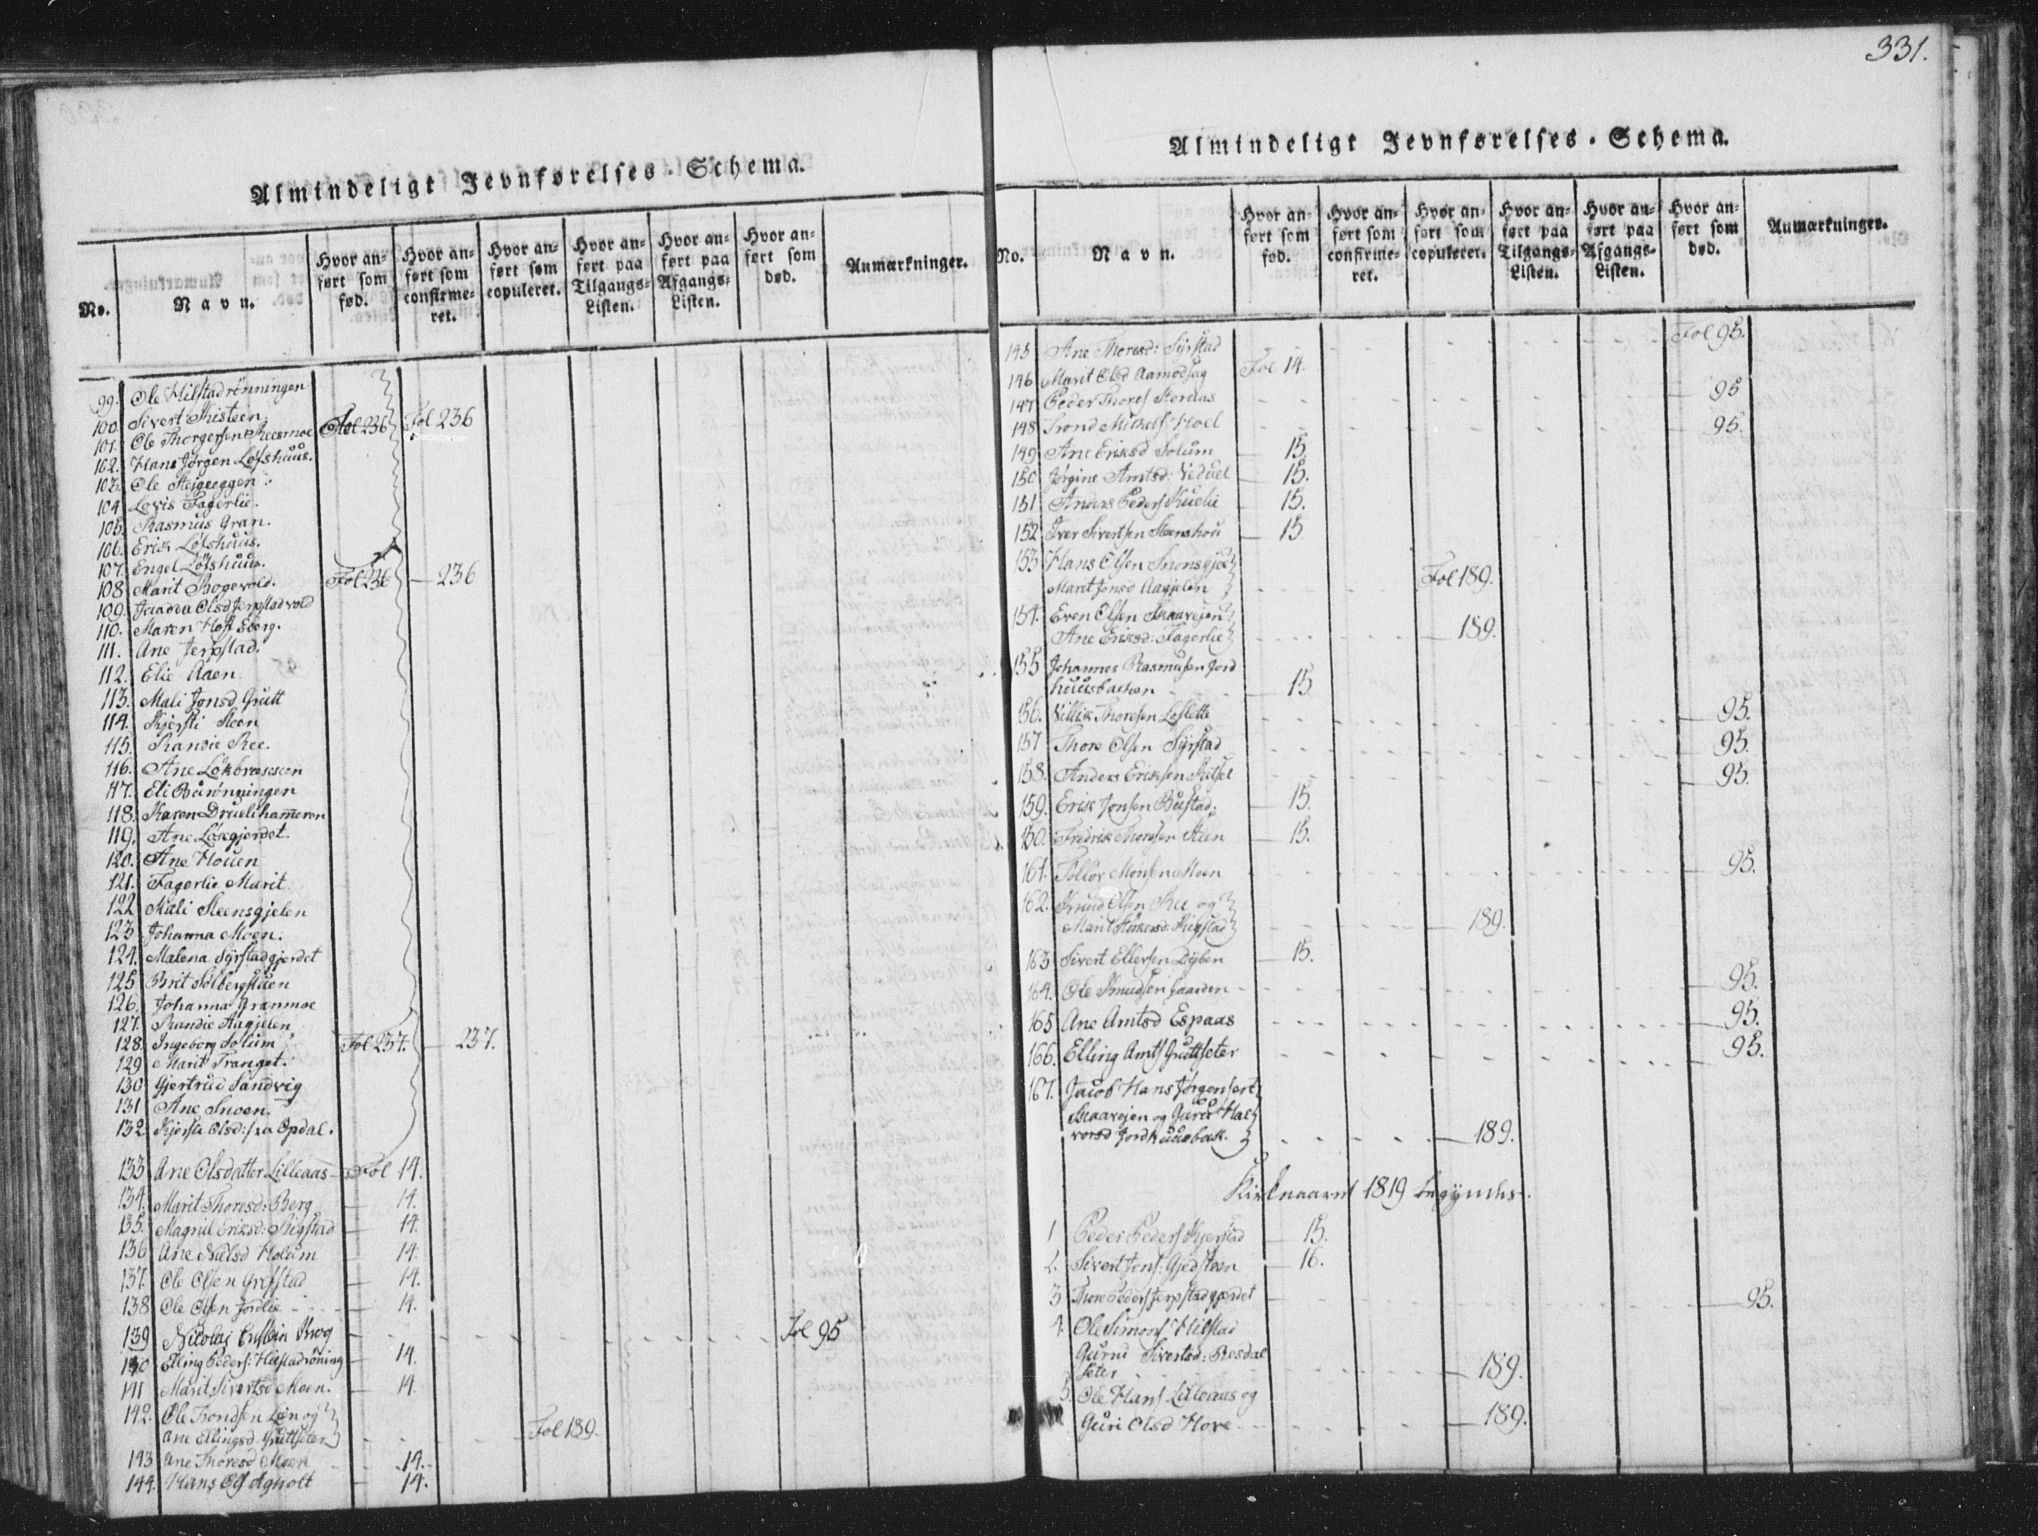 331.
Almindeligt Jevnførelses-Schema.
No. Navn. Hvor anført som fød. Hvor anført som confirmeret. Hvor anført som copuleret. Hvor anført paa Tilgangs-Listen. Hvor anført paa Afgangs-Listen. Hvor anført som død. Anmærkninger.
99. Ole Hilstadrönningen
100. Sivert
101. Ole Thorgersen Reesmoe Fol 236 Fol 236
102. Hans Jörgen Löfshuus.
103. Ole Steigeeggen
104. Lovis Fagerlie.
105. Rasmus Gran.
106. Erik Löfshuus.
107. Engel Löfshuus.
108. Marit Bogevold. Fol 236 — 236
109. Olsd Jerpstadvold
110. Maren Hoft Eberg.
111. Ane Jerpstad.
112. Elie Aaen
113. Mali Jonsd. Grutt
114. Kjersti Steen
115. Randie Ree.
116. Ane
117. Eli Burönningen
118. Karen Druelihammeren
119. Ane Löxegjerdet.
120. Ane Houen
121. Fagerlie Marit
122 Mali Steensgjelen
123. Johanna Moen.
124. Malena Syrstadgjerdet
125 Brit Solbergstuen
126. Johanna Granmoe
127. Randie Aagjelen
128. Ingeborg Solum Fol 237. — 237.
129 Marit Tranget.
130 Gjertrud Sandvig
131 Ane Snoen.
132. Kjersti Olsd: fra Opdal.
133 Ane Olsdatter Lilleaas — Fol 14.
134. Marit Thoresd: Berg — 14.
135. Magnil Eriksd: Rigstad — 14.
136 Ane Nielsd Holum — 14.
137. Ole Olsen Grefstad — 14.
138 Ole Olsen Jordlie — 14.
139 Nicolai Krog Fol 95
140 Elling Peders: Hilstadröning — 14.
141 Marit Sivertsd Moen. — 14.
142. Ole Trondsen Lien og
Ane Ellingsd. Gruttseter Fol 189.
143 Ane Thoresd Moen 14.
144. Hans Ols Agholt — 14.
Almindeligt Jevnførelses-Schema.
No. Navn. Hvor anført som fød. Hvor anført som confirmeret. Hvor anført som copuleret. Hvor anført paa Tilgangs-Listen. Hvor anført paa Afgangs-Listen. Hvor anført som død. Anmærkninger.
145 Ane Thoresd: Syrstad Fol 95.
146 Marit Olsd Aamodsag Fol 14.
147 Peder Thores Stordas 95
148 Trond Mikels Hoel 95.
149 Ane Eriksd Solum — 15.
150 Jörgine Arntsd: — 15.
151 Anders Peders Kuelie — 15.
152 Iver Sivertsen Steenshou — 15.
153 Hans Olsen
Marit Jonsd Aagjelen Fol 189.
154. Even Olsen Skaarejen
Ane Eriksd: Fagerlie — 189.
155 Johannes Rasmusen Jord
huusbachen — 15.
156. Thoresen Loslette — 95.
157 Thore Olsen Syrstad — 95.
158. Anders Eriksen — 95
159. Erik Jonsen Bustad. — 15.
160. Fredrik Thoresen Stuen — 15.
161. Monsen Moen — 95.
162. Knud Olsen Ree og
Marit — 189.
163 Sivert Ellefsen Dyben — 15.
164. Ole Knudsen Gaarden — 95.
165 Ane Arntsd Espaas — 95.
166. Elling Arnts Gruttseter — 95.
167. Jacob Hans Jörgensen
Skaarejen og Guru Hal
vorsd Jordhuusbak. — 189.
Kirkeaaret 1819 begyndes.
1 Peder Peders Kjerstad — 15.
2. Sivert Jons: Gjedsteen — 16.
3 Thore Peders Jerpstadgjerdet — 95.
4. Ole Simons Hilstad
Guru Sivertsd: Resdal
seter — 189.
5. Ole Hans Lilleaas og
Guri Olsd Hove — 189.